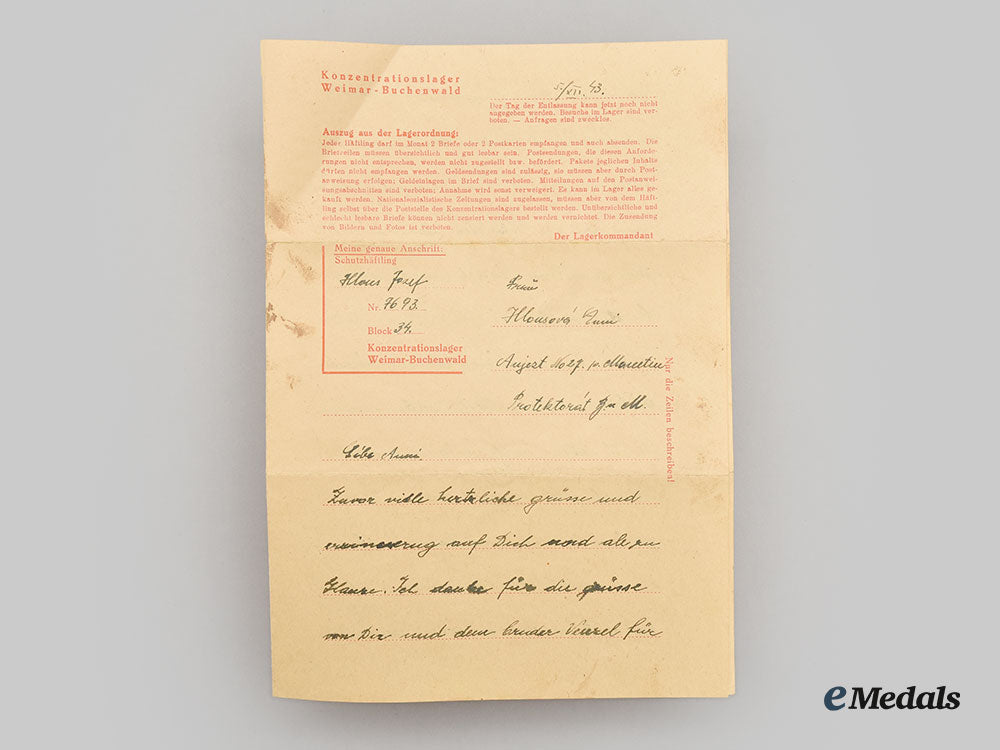 Konzentrationslager
Weimar-Buchenwald
5/XII. 43.
Der Tag der Entlassung kann jetzt noch nicht
angegeben werden. Besuche im Lager sind ver-
boten. — Anfragen sind zwecklos.
Auszug aus der Lagerordnung:
Jeder Häftling darf im Monat 2 Briefe oder 2 Postkarten empfangen und auch absenden. Die
Briefzeilen müssen übersichtlich und gut lesbar sein. Postsendungen, die diesen Anforde-
rungen nicht entsprechen, werden nicht zugestellt bzw. befördert. Pakete jeglichen Inhalts
dürfen nicht empfangen werden. Geldsendungen sind zulässig, sie müssen aber durch Post-
anweisung erfolgen; Geldeinlagen im Brief sind verboten. Mitteilungen auf den Postanwei-
sungsabschnitten sind verboten; Annahme wird sonst verweigert. Es kann im Lager alles ge-
kauft werden. Nationalsozialistische Zeitungen sind zugelassen, müssen aber von dem Häft-
ling selbst über die Poststelle des Konzentrationslagers bestellt werden. Unübersichtliche und
schlecht lesbare Briefe können nicht zensiert werden und werden vernichtet. Die Zusendung
von Bildern und Fotos ist verboten.
Der Lagerkommandant
Meine genaue Anschrift:
Schutzhäftling
Klous Jozef
Nr. 7693.
Block 34.
Konzentrationslager
Weimar-Buchenwald
Frau
Klousová Anni
No 27. p. Manetin
Protektorát B u M.
Nur die Zeilen beschreiben!
Libe Anni
Zuvor vielle hertzliche grüsse und
auf Dich und alle zu
Hause. Ich danke für die grüsse
von Dir und dem bruder Venzel für
eMedals